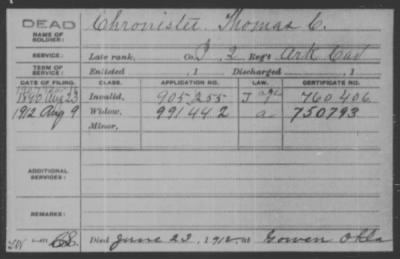 DEAD
NAME OF SOLDIER: Chronister, Thomas C.
SERVICE: Late rank, Co. I, 2 Reg't Ark Cav
TERM OF SERVICE: Enlisted , 1 Discharged , 1
DATE OF FILING. CLASS. APPLICATION NO. LAW. CERTIFICATE NO.
1890 Aug 23 Invalid, 905,255 760,406.
1912 Aug 9 Widow, 991442 a 750793
Minor,
ADDITIONAL SERVICES:
REMARKS:
Died June 23, 1912, at Gowen Okla